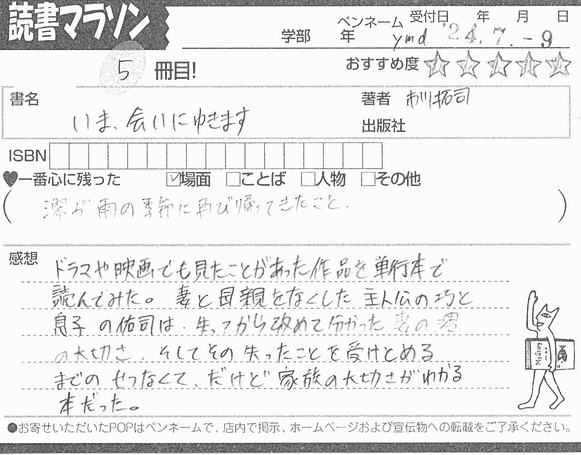 読書マラソン
学部 年 ペンネーム ymd 受付日 '24年7月-9日
5 冊目!
おすすめ度 ☆☆☆☆☆
書名 いま、会いにゆきます
著者 市川拓司
出版社
ISBN
♥一番心に残った ☑場面 □ことば □人物 □その他
(澪が雨の季節に再び帰ってきたこと.)
感想
ドラマや映画でも見たことがあった作品を単行本で
読んでみた。妻と母親をなくした主人公の巧と
息子の佑司は、失ってから改めて分かった妻の澪
の大切さ、そしてその失ったことを受けとめる
までのせつなくて、だけど家族の大切さがわかる
本だった。
●お寄せいただいたPOPはペンネームで、店内で掲示、ホームページおよび宣伝物への転載をご了承ください。